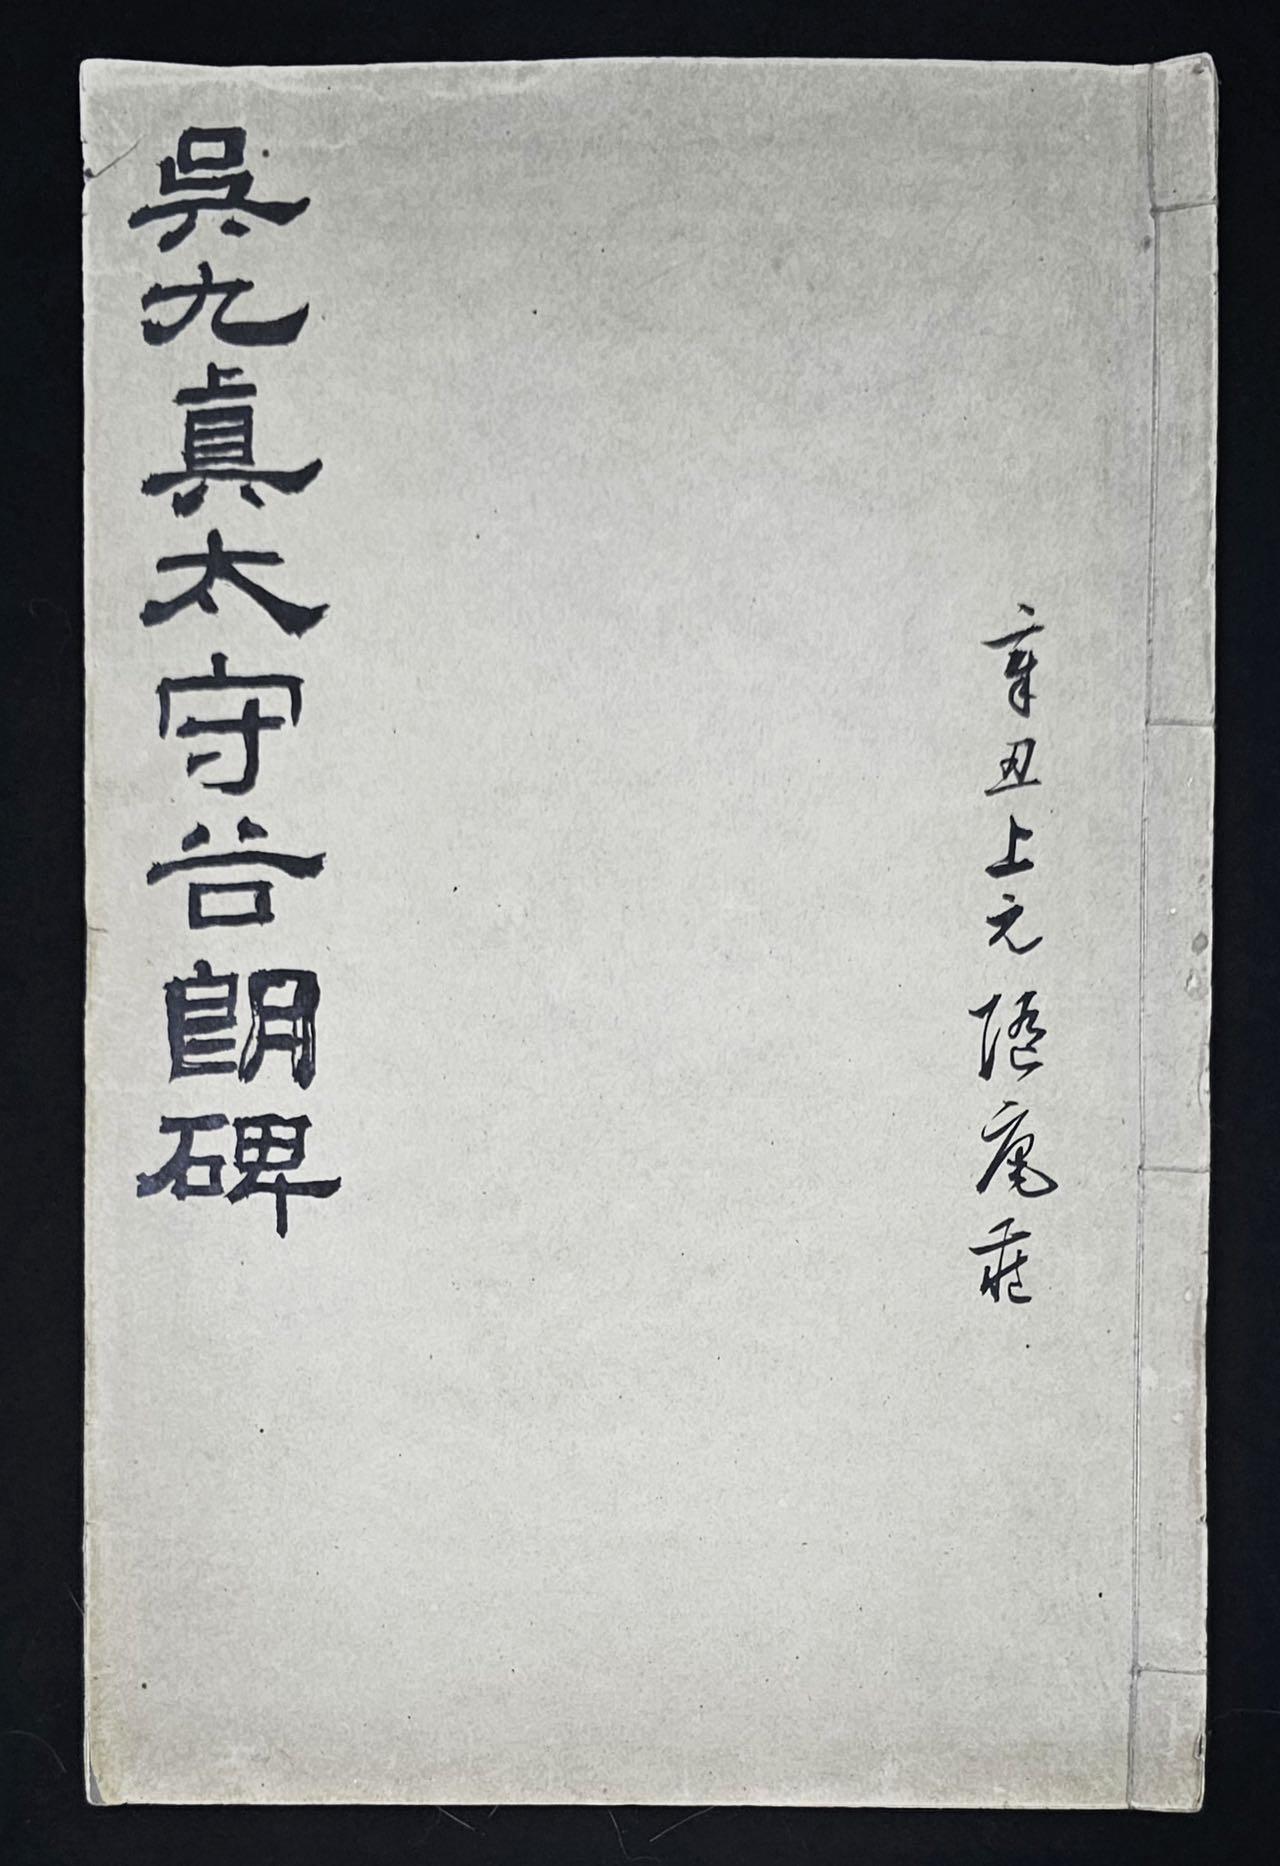 辛丑上元 隨庵
吳九眞太守谷朗碑